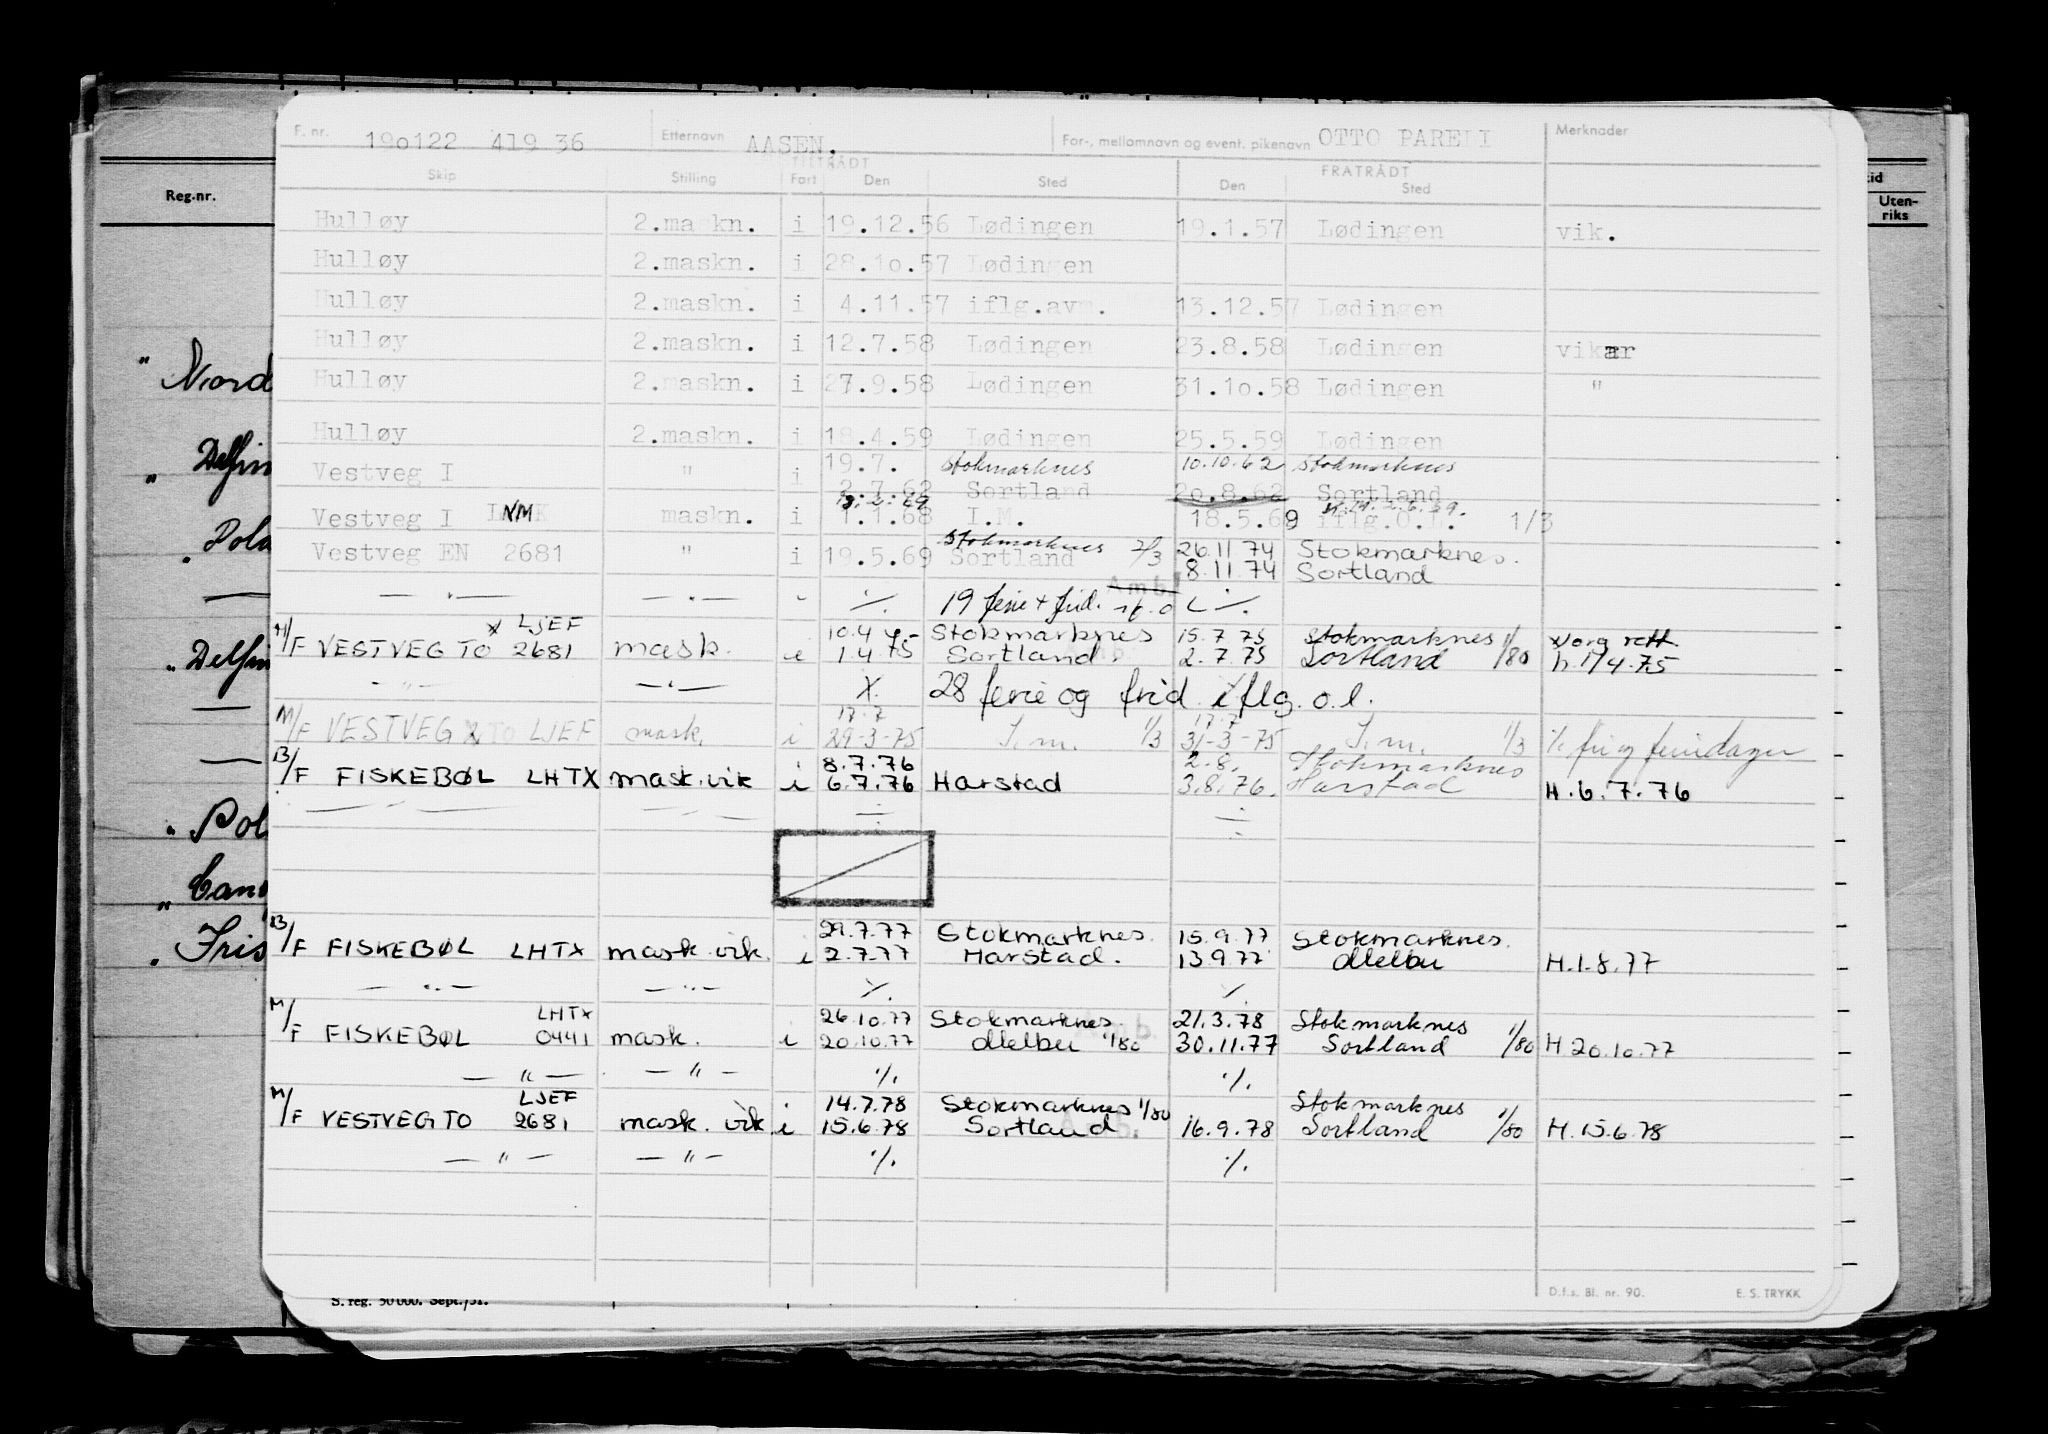 F. nr. 190122 419 36 Etternavn AASEN. For-, mellomnavn og event. pikenavn OTTO PARELI Merknader
TILTRÅDT FRATRÅDT
Skip Stilling Fart Den Sted Den Sted
Reg.nr.
Uten-
riks
Hulløy 2.maskn. i 19.12.56 Lødingen 19.1.57 Lødingen vik.
Hulløy 2.maskn. i 28.10.57 Lødingen
Hulløy 2.maskn. i 4.11.57 iflg.avm. 13.12.57 Lødingen
Hulløy 2.maskn. i 12.7.58 Lødingen 23.8.58 Lødingen vikar
Hulløy 2.maskn. i 27.9.58 Lødingen 31.10.58 Lødingen "
Hulløy 2.maskn. i 18.4.59 Lødingen 25.5.59 Lødingen
19.7. Stokmarknes 10.10.62 Stokmarknes
Vestveg I " i 2.7.62 Sortland 20.8.62 Sortland
Vestveg I maskn. i 1.1.68 I.M. 18.5.69 iflg.O.L. 1/3
Stokmarknes 26.11 74 Stokmarknes.
Vestveg EN 2681 " i 19.5.69 Sortland 2/3 8.11.74 Sortland
— " — — " — " ./. 19 ferie + frid. ./.
LJEF 10.4 Stokmarknes 15.7 75 Stokmarknes
M/F VESTVEG TO 2681 mask. i 1.4 75 Sortland. 2.7.75 Sortland 1/80 h. 1/4.75
— " — — " — 28 ferie og frid iflg. o.l.
17.7 17.7
M/F VESTVEG TO LJEF mask. i 29-3-75 I.m. 1/3 31-3-75 I.m. 1/3 ./. fri og feriedager
8.7.76 2.8. Stokmarknes
B/F FISKEBØL LHTX mask.vik i 6.7.76 Harstad 3.8.76. Harstad H.6.7.76
29.7.77 Stokmarknes. 15.9.77 Stokmarknes.
B/F FISKEBØL LHTX mask.vik. i 2.7.77 Harstad. 13.9.77 Melbu H.1.8.77
— " — — " — ./. ./.
LHTX 26.10.77 Stokmarknes 21.3.78 Stokmarknes
M/F FISKEBØL 0441 mask. i 20.10.77 Melbu 1/80 30.11.77 Sortland 1/80 H 20.10.77
— " — — " — ./. ./.
LJEF 14.7.78 Stokmarknes 1/80 Stokmarknes
M/F VESTVEG TO 2681 mask. vik i 15.6.78 Sortland 16.9.78 Sortland 1/80 H.15.6.78
— " — — " — ./. ./.
D.f.s. Bl. nr. 90. E. S. TRYKK
S. reg. 50 000. Sept./51.
" Nord
" Delfin
" Pola
" Delfin
" Pol